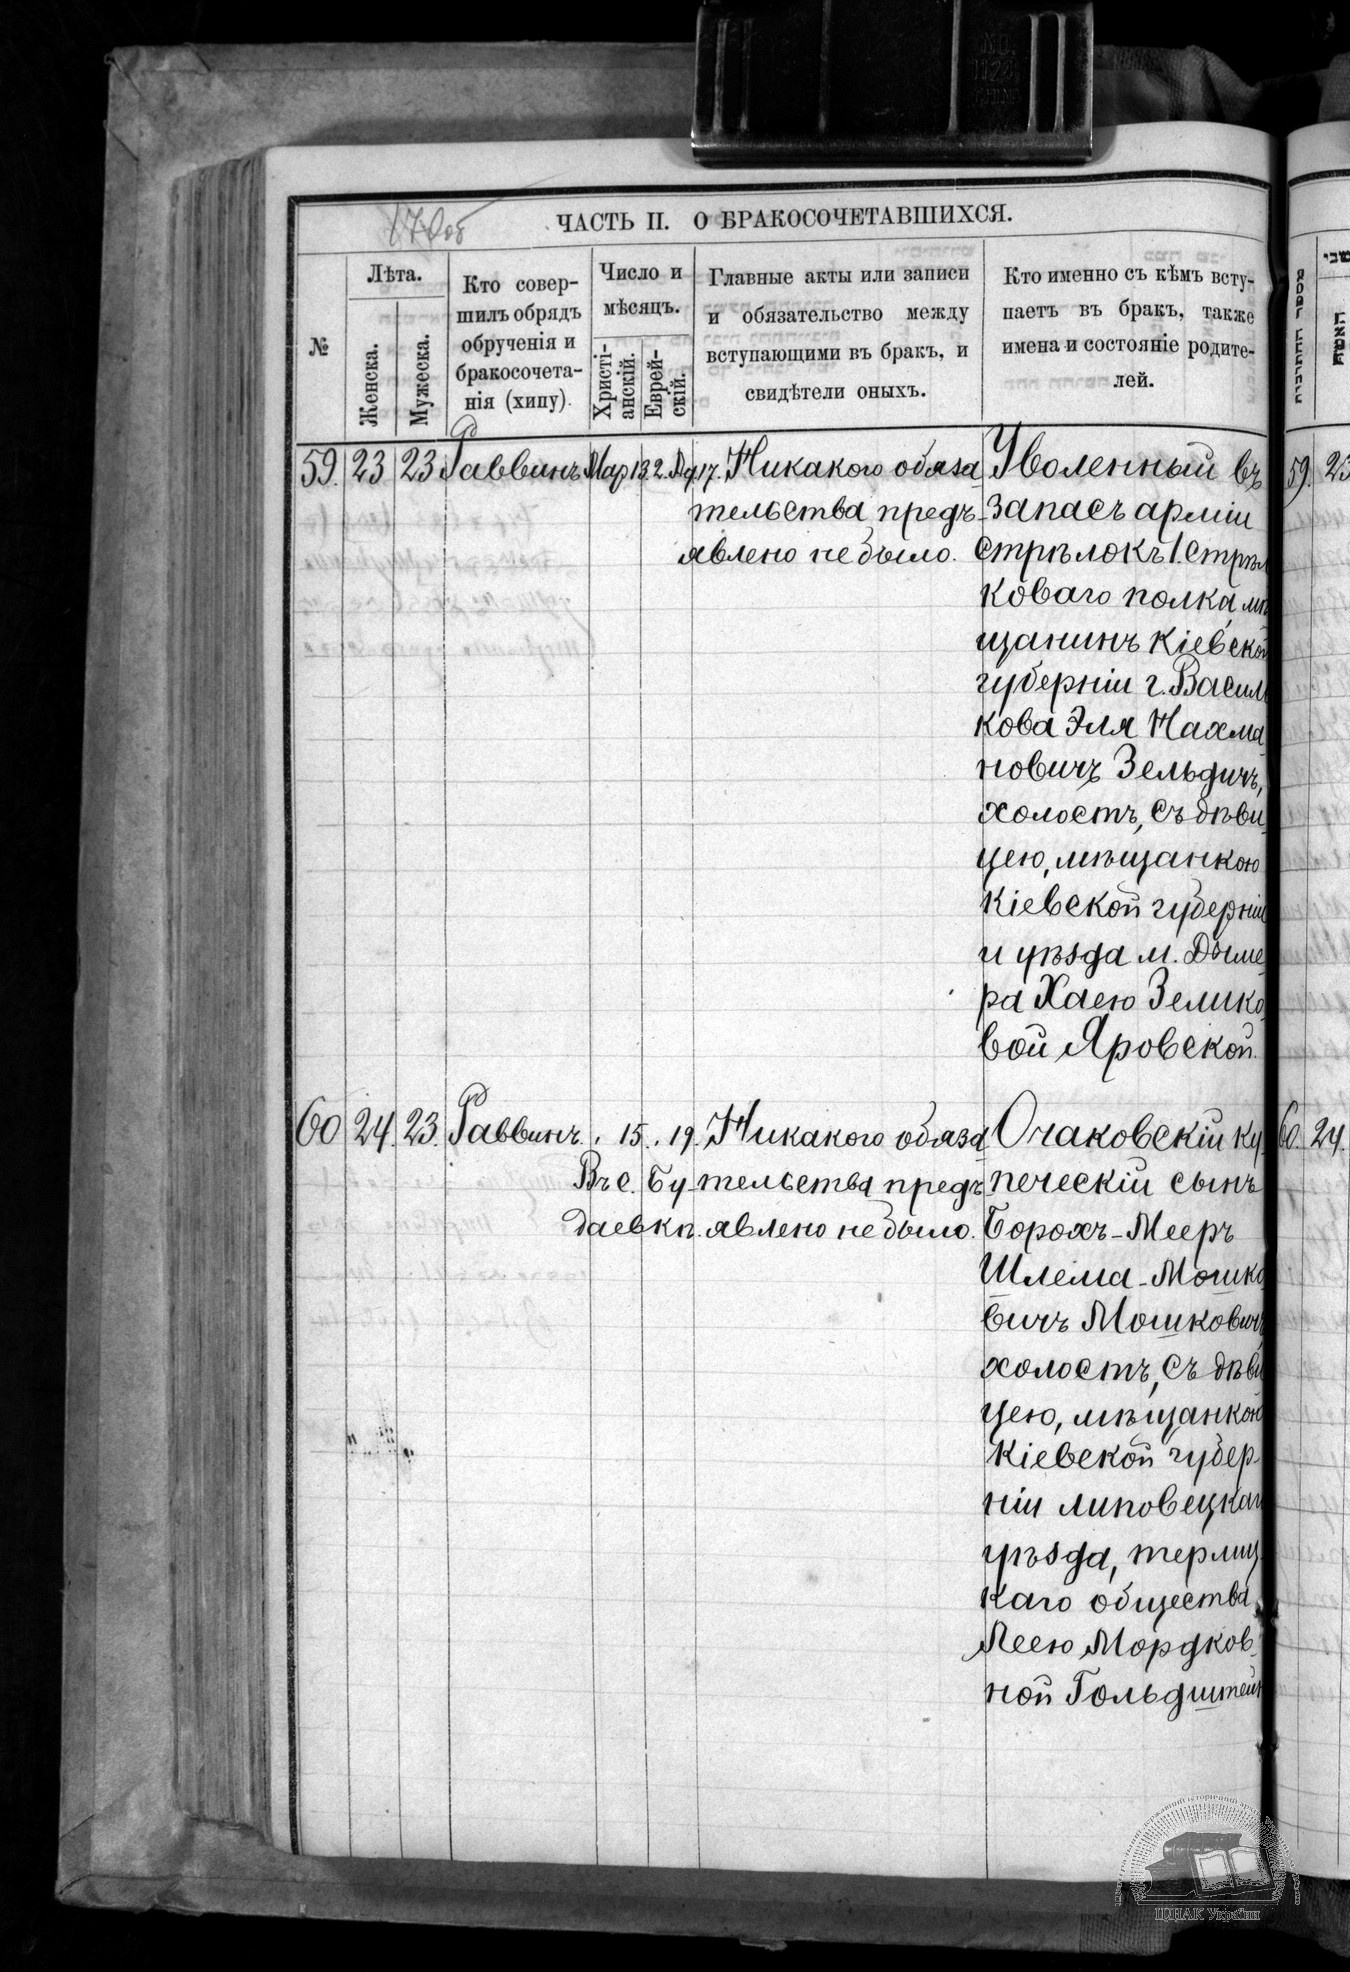 17об
ЧАСТЬ II. О БРАКОСОЧЕТАВШИХСЯ.
№
Лѣта.
Женска.
Мужеска.
Кто совер-
шилъ обрядъ
обрученія и
бракосочета-
нія (хипу).
Число и
мѣсяцъ.
Христі-
анскій.
Еврей-
скій.
Главные акты или записи
и обязательство между
вступающими въ бракъ, и
свидѣтели оныхъ.
Кто именно съ кѣмъ всту-
паетъ въ бракъ, также
имена и состояніе родите-
лей.
59. 23 23 Раввинъ Мар 13 17. Никакого обяза
тельства предъ-
явлено не было.
Уволенный въ
запасъ арміи
стрѣлокъ 1. стрѣл
коваго полка, мѣ
щанинъ Кіевской
губерніи г. Василь
кова Эля Нахма
новичъ Зельдичъ,
холостъ, съ дѣви
цею, мѣщанкою
Кіевской губерніи
и уѣзда м. Дыме
ра Хаею Зелико-
вой Яровской.
60 24. 23. Раввинъ. 15. 19. Никакого обяза
Въ с. Бу- тельства предъ-
даевкѣ. явлено не было.
Очаковскій ку-
печескій сынъ
Борохъ-Мееръ
Шлема-Мошко
вичъ Мошковичъ,
холостъ, съ дѣви
цею, мѣщанкою
Кіевской губер-
ніи липовецкаго
уѣзда, терлиц-
каго общества
Леею Мордков-
ной Гольдштейн
59. 23
60. 24.
ЦДІАК України